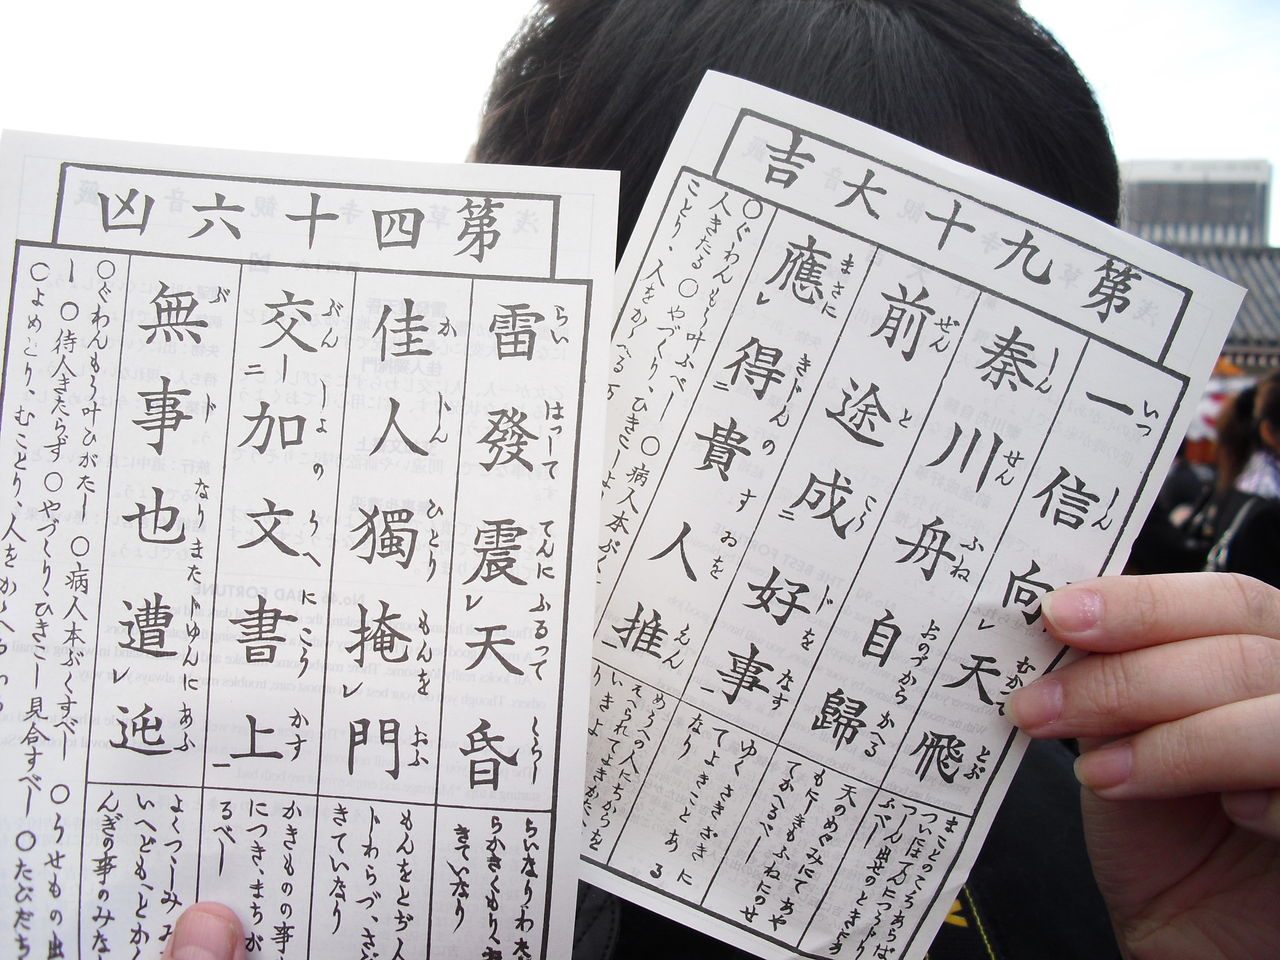 第四十六凶
雷發震天昏
らい はつして てんに ふるって くらし
佳人獨掩門
か じん ひとり もんを おふ
交加文書上
ぶん しよ の うへ に こう かす
無事也遭迍
ぶ じ なり また じゆんに あふ
きていなり
もんをとぢ人
きていなり
かきものの事
につき、まちが
るべし
よくつゝしみ
いへども、とかく
んぎの事のみな
○ぐわんもう叶ひがたし ○病人本ぶくすべし ○うせもの出
し ○待人きたらず ○やづくり、ひきこし見合すべし ○たびだち
○よめとり、むことり、人をかゝへる
第九十大吉
一信向天飛
いつ しん むかつて とぶ
秦川舟自歸
しん せん ふね おのづから かへる
前途成好事
ぜん と こう じ を なす
應得貴人推
まさに きじんの すおを えん
まことのこころあらば
ついにはてんにつうじり
ふべし
天のめぐみにてちや
もにしきもふねにのせ
てかへるべし
ゆくさきざきに
てよきことある
なり
めうへの人にちからを
そへられてよきかたへ
○ぐわんもう叶ふべし ○病人本ぶく
人きたる ○やづくり、ひきこしよし
ことり、人をかゝへる万